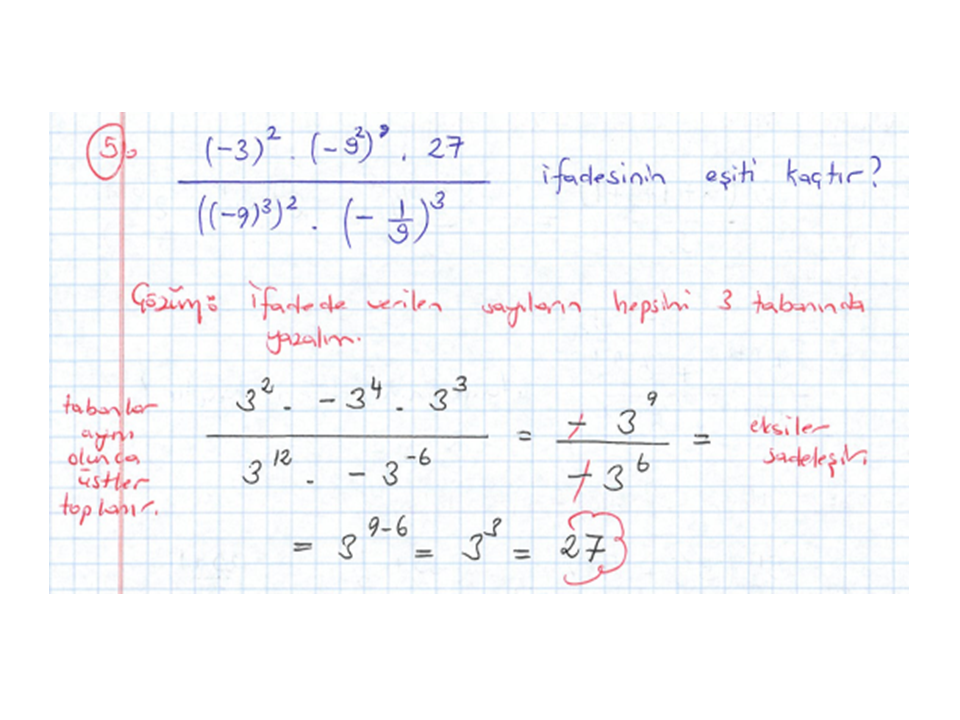 5. (-3)² . (-9²)⁹ . 27
((-9)³)² . (-1/9)³
ifadesinin eşiti kaçtır?
Çözüm: İfadede verilen sayıların hepsini 3 tabanında
yazalım.
tabanlar
aynı
olunca
üstler
toplanır.
3² . -3⁴ . 3³
3¹² . -3⁻⁶
= -3⁹ / -3⁶ =
eksiler
sadeleşir.
= 3⁹⁻⁶ = 3³ = 27